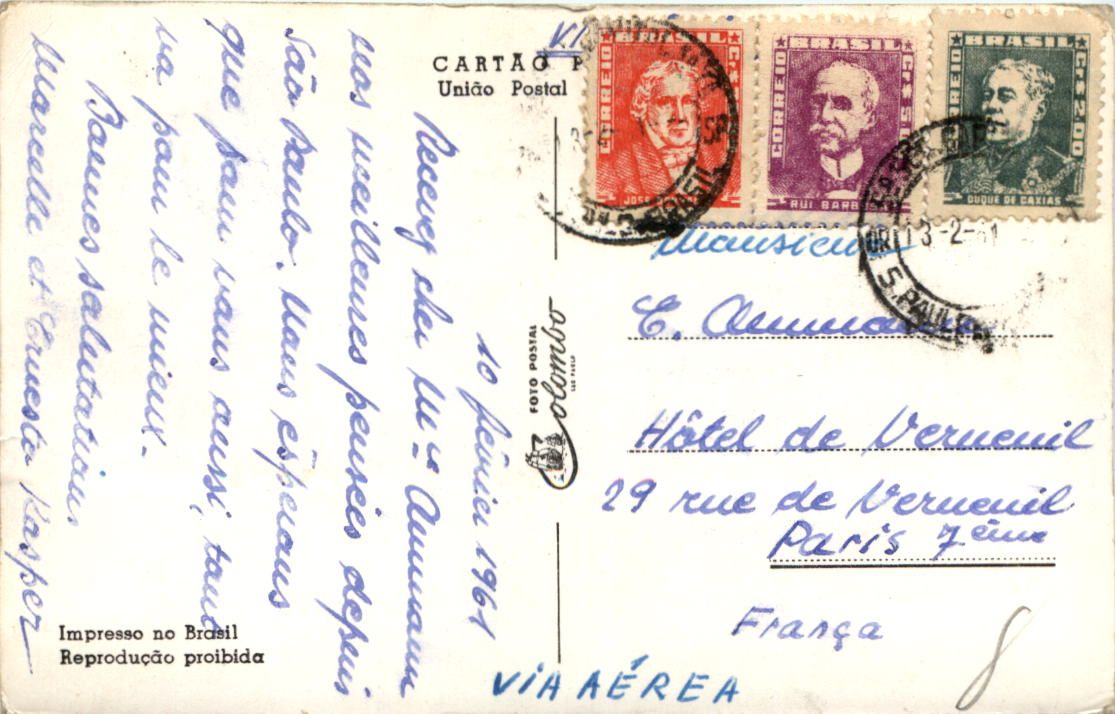 CARTÃO P
União Postal
10 février 1961
Recevez cher Mr Ammann
nos meilleures pensées depuis
São Paulo. Nous espérons
que pour vous aussi, tout
va pour le mieux.
Bonnes salutations
Marcelle et Ernesto Kasper
Impresso no Brasil
Reprodução proibida
FOTO POSTAL
Colombo
SÃO PAULO
BRASIL
CORREIO
BRASIL
CORREIO
RUI BARB
BRASIL
CORREIO
Cr$ 2,00
DUQUE DE CAXIAS
BRASIL
13-2-61
S. PAULO
Monsieur
E. Ammann
Hôtel de Verneuil
29 rue de Verneuil
Paris 7ème
França
VIA AÉREA
8